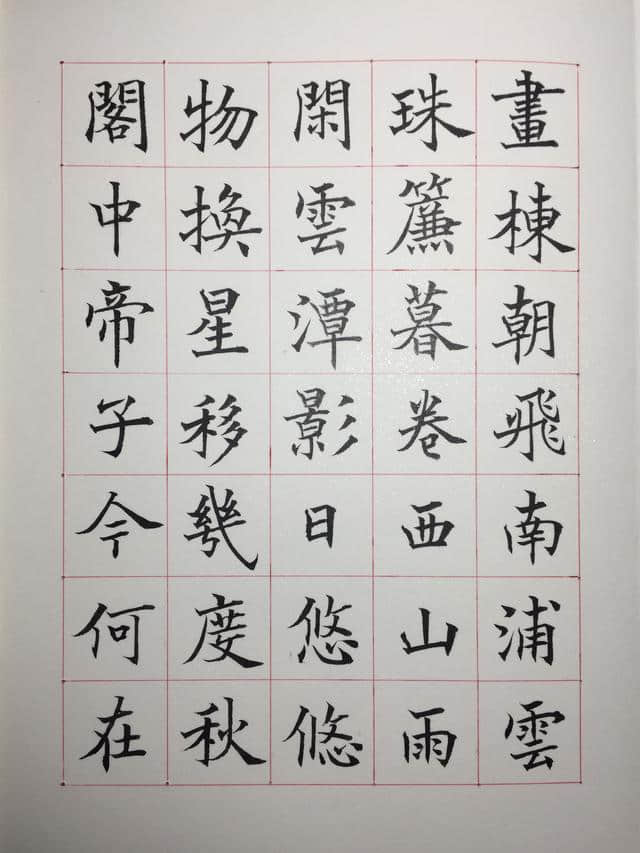 畫棟朝飛南浦雲
珠簾暮卷西山雨
閑雲潭影日悠悠
物換星移幾度秋
閣中帝子今何在